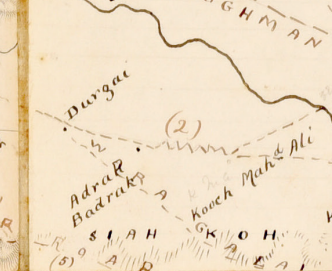 GHMAN
Durgai
(2)
Adrak
Badrak
Kooch Mahd Ali
SIAH KOH
(5)